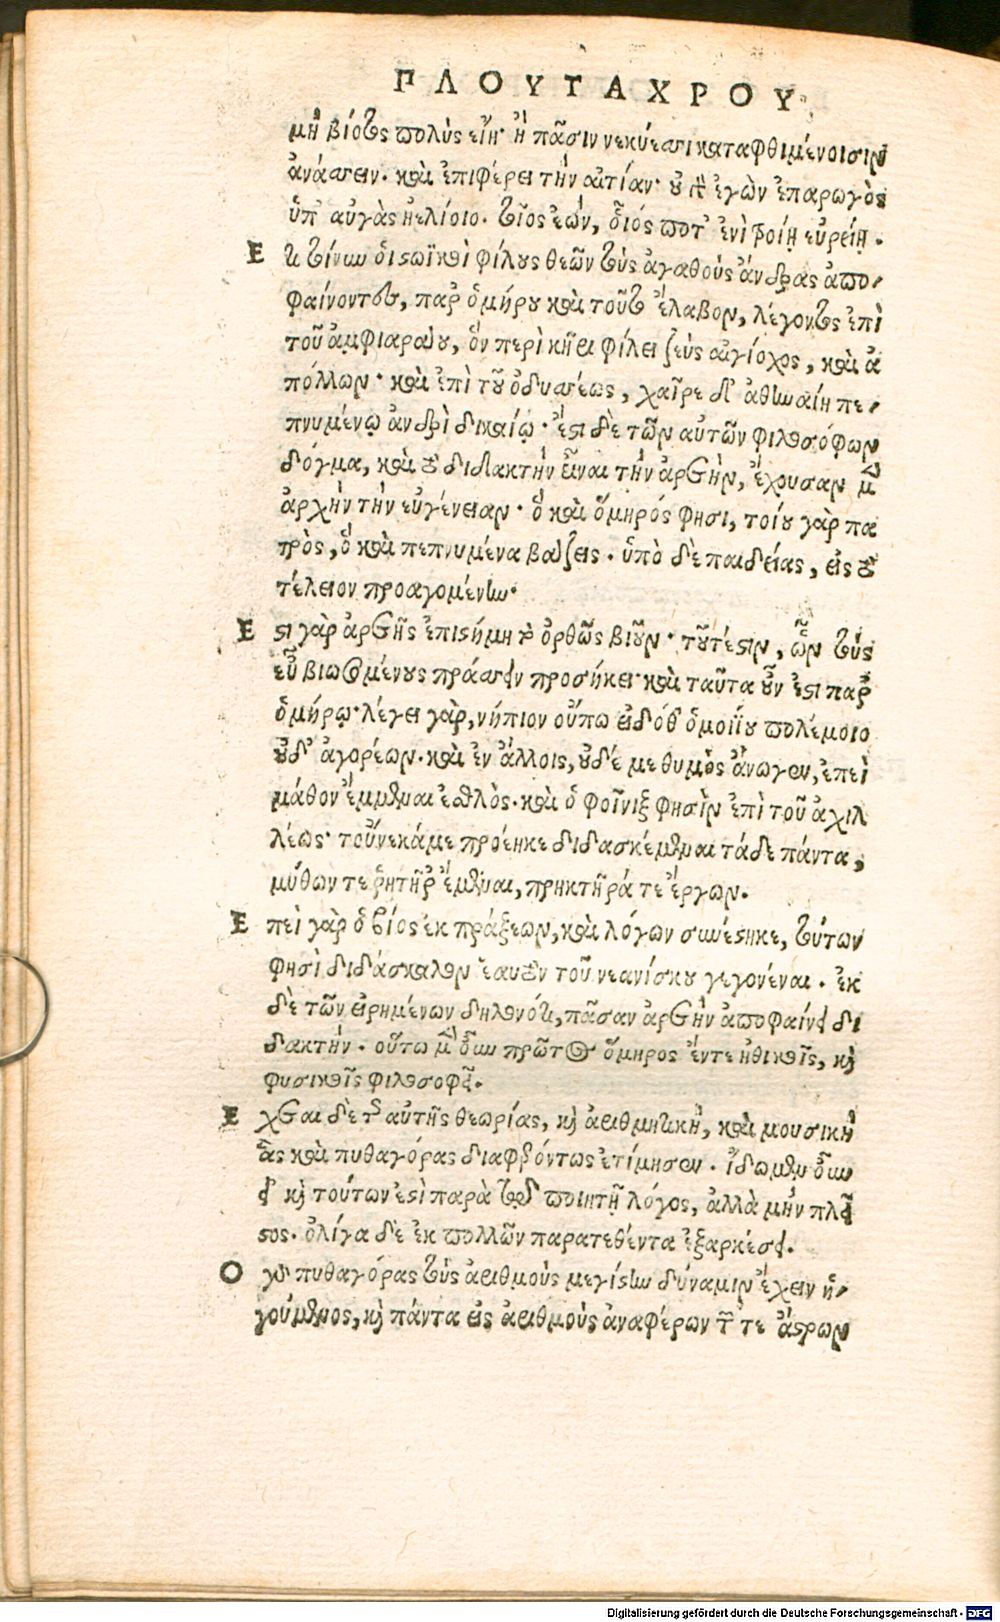 ΠΛΟΥΤΑΧΡΟΥ
μὴ βίοτος πολὺς εἴη· ἢ πᾶσιν νεκύεσσι καταφθιμένοισιν
ἀνάσσειν. καὶ ἐπιφέρει τὴν αἰτίαν· οὐ γὰρ ἐγὼν ἐπαρωγὸς
ὑπ' αὐγὰς ἠελίοιο. τοῖος ἐών, οἷός ποτ' ἐνὶ τροίῃ εὐρείῃ.
Ε τι τοίνυν οἱ στωϊκοὶ φίλους θεῶν τοὺς ἀγαθοὺς ἄνδρας ἀπο-
φαίνοντες, παρ' ὁμήρου καὶ τοῦτο ἔλαβον, λέγοντος ἐπὶ
τοῦ ἀμφιαράου, ὃν περὶ κῆρι φίλει ζεὺς αἰγίοχος, καὶ ἀ
πόλλων· καὶ ἐπὶ τοῦ ὀδυσσέως, χαῖρε δ' ἀθηναίη πε-
πνυμένῳ ἀνδρὶ δικαίῳ· ἔστι δὲ τῶν αὐτῶν φιλοσόφων
δόγμα, καὶ τὸ διδακτὴν εἶναι τὴν ἀρετὴν, ἔχουσαν μὲν
ἀρχὴν τὴν εὐγένειαν· ὃ καὶ ὅμηρός φησι, τοίου γὰρ πα
τρὸς, ὃ καὶ πεπνυμένα βάζεις. ὑπὸ δὲ παιδείας, εἰς τὸ
τέλειον προαγομένην·
Ε στι γὰρ ἀρετῆς ἐπιστήμη τὸ ὀρθῶς βιοῦν· τοῦτέστιν, ὧν τοὺς
εὖ βιωσομένους πράσσειν προσήκει· καὶ ταῦτα οὖν ἐστι παρ'
ὁμήρῳ· λέγει γὰρ, νήπιον οὔπω εἰδόθ' ὁμοιΐου πολέμοιο
οὐδ' ἀγορέων. καὶ ἐν ἄλλοις, οὐδέ με θυμὸς ἄνωγεν, ἐπεὶ
μάθον ἔμμεναι ἐσθλὸς. καὶ ὁ φοῖνιξ φησὶν ἐπὶ τοῦ ἀχιλ
λέως· τοὔνεκά με προέηκε διδασκέμεναι τάδε πάντα,
μύθων τε ῥητῆρ' ἔμεναι, πρηκτῆρά τε ἔργων.
Ε πεὶ γὰρ ὁ βίος ἐκ πράξεων, καὶ λόγων συνέστηκε, τούτων
φησὶ διδάσκαλον ἑαυτὸν τοῦ νεανίσκου γεγονέναι. ἐκ
δὲ τῶν εἰρημένων δηλονότι, πᾶσαν ἀρετὴν ἀποφαίνει δι
δακτήν. οὕτω μὲν οὖν πρῶτος ὅμηρος ἔν τε ἠθικοῖς, καὶ
φυσικοῖς φιλοσοφεῖ.
Ε χεται δὲ τῆς αὐτῆς θεωρίας, καὶ ἀριθμητικὴ, καὶ μουσικὴ
ἃς καὶ πυθαγόρας διαφερόντως ἐτίμησεν. ἴδωμεν οὖν
εἰ καὶ τούτων ἐστὶ παρὰ τῷ ποιητῇ λόγος, ἀλλὰ μὴν πλεῖ
στος. ὀλίγα δὲ ἐκ πολλῶν παρατεθέντα ἐξαρκέσει.
Ο γὰρ πυθαγόρας τοὺς ἀριθμοὺς μεγίστην δύναμιν ἔχειν ἡ-
γούμενος, καὶ πάντα εἰς ἀριθμοὺς ἀναφέρων τῶν τε ἄστρων
Digitalisierung gefördert durch die Deutsche Forschungsgemeinschaft - DFG